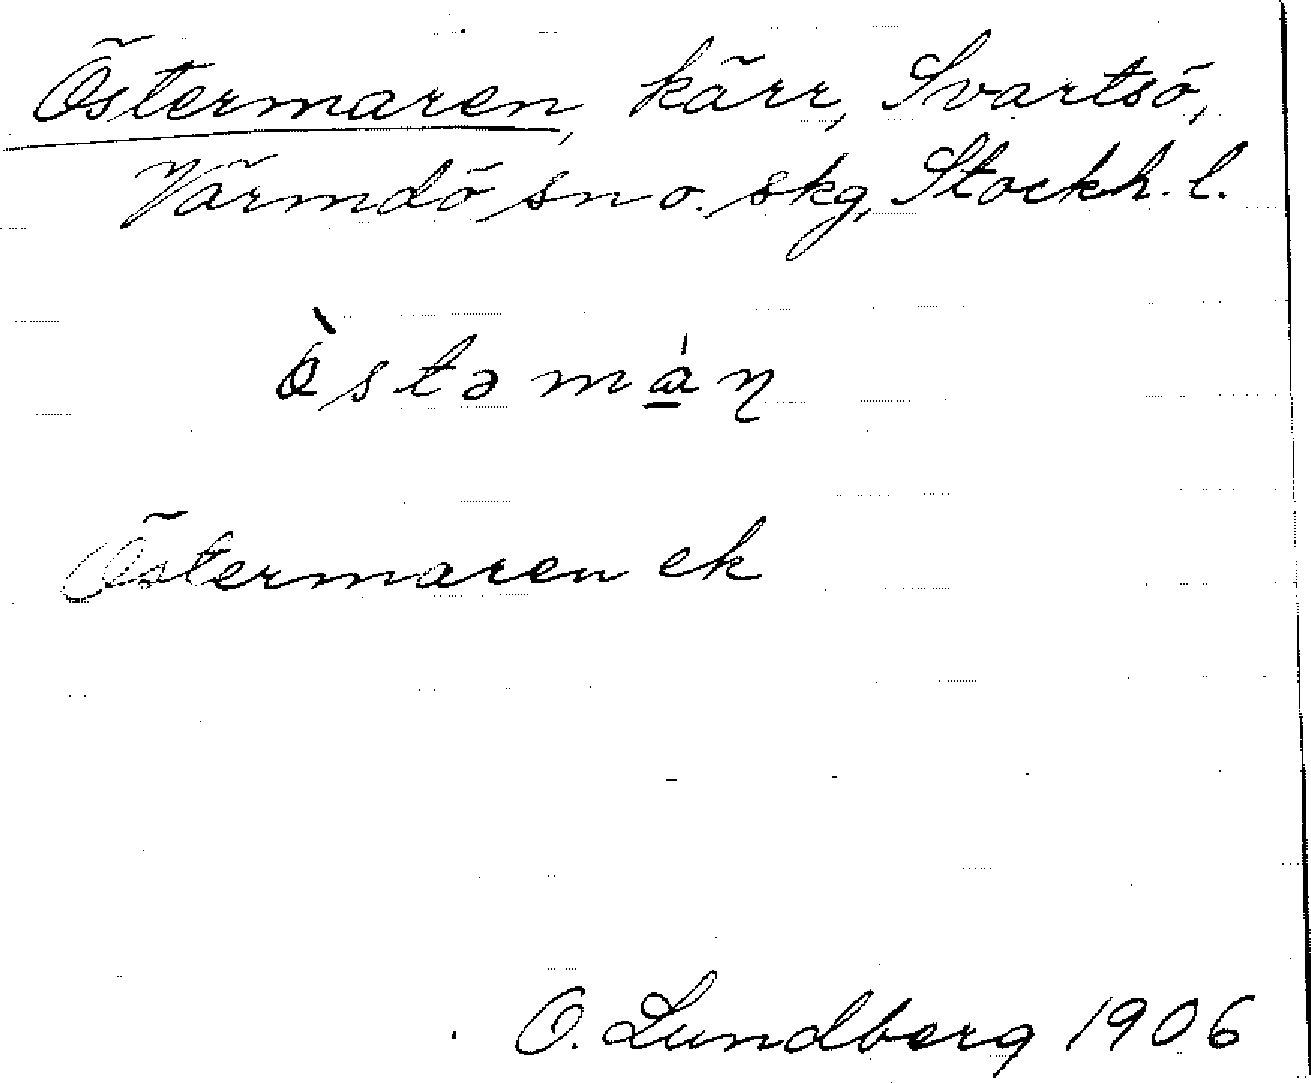 Östermaren, kärr, Svartsö,
Värmdö sn o. skg, Stockh. l.
Östermaren ek
O. Lundberg 1906